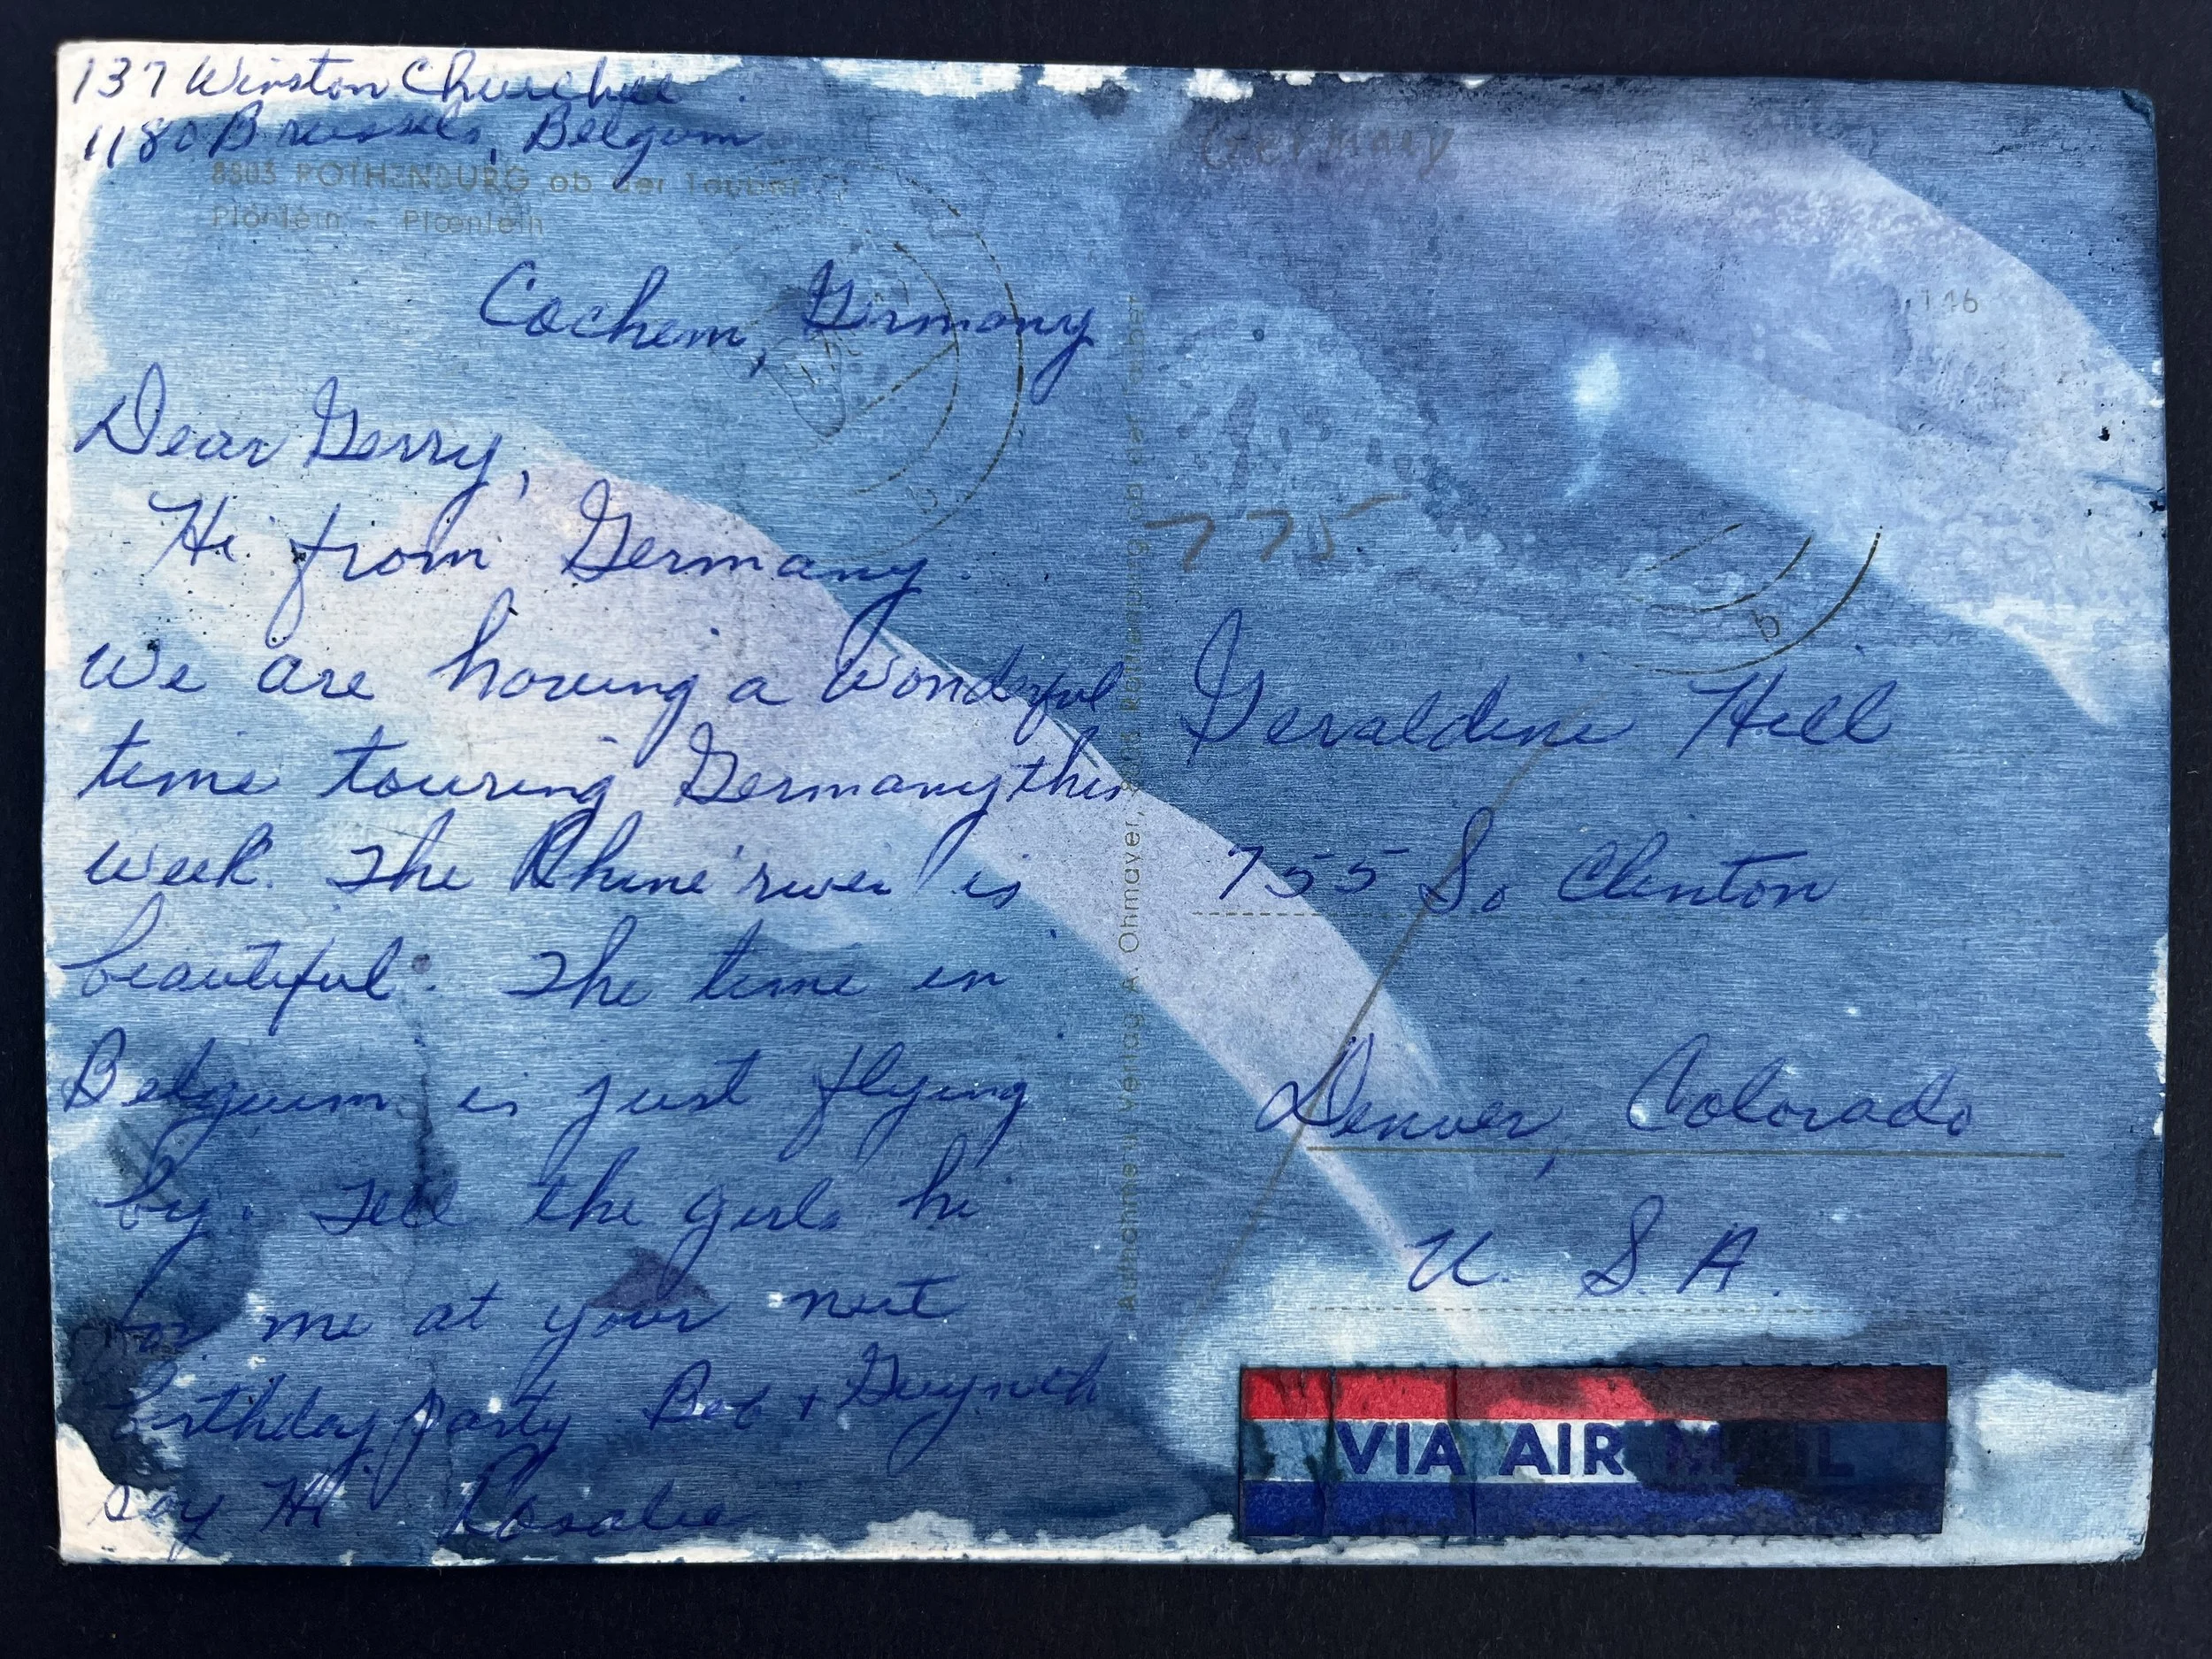 137 Winston Churchill
1180 Brussels, Belgum
8803 ROTHENBURG ob der Tauber
Plönlein - Plœnlein
Cochem, Germany
Dear Gerry,
Hi from Germany.
We are having a wonderful
time touring Germany this
week. The Rhine river is
beautiful. The time in
Belguim is just flying
by. Tell the girls hi
for me at your next
birthday party Bob +
say Hi Rosalie
Germany
146
775
b
b
Verlag A. Ohmayer, 8803 Rothenburg ob der Tauber
Geraldine Hill
755 So Clinton
Denver, Colorado
U. S. A.
VIA AIR MAIL